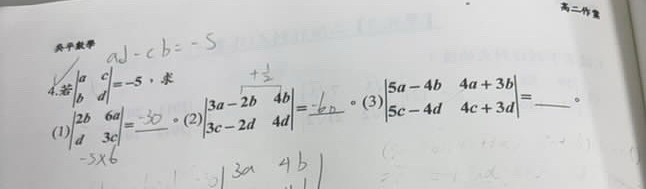 高二作業
英平數學
ad-cb=-5
4.若|a c|
|b d|=-5，求
+½
(1)|2b 6a|
|d 3c|=-30。(2)|3a-2b 4b|
|3c-2d 4d|=-60。(3)|5a-4b 4a+3b|
|5c-4d 4c+3d|=____。
-5×6
|3a 4b|